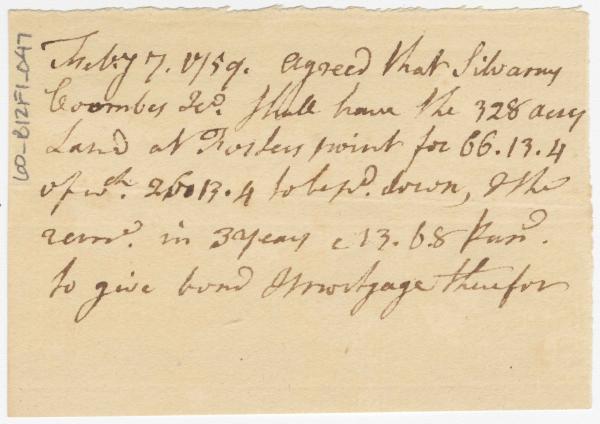 Feb.y 7. 1759. Agreed that Silvanus
Coombes Jr. shall have the 328 acres
Land at Fosters point for 66.13.4
of wch. 26.13.4 to be pd. down, & the
remr. in 3 years @ 13.6.8 Pr ann.
to give bond & mortgage therefor
60-B12F1-047